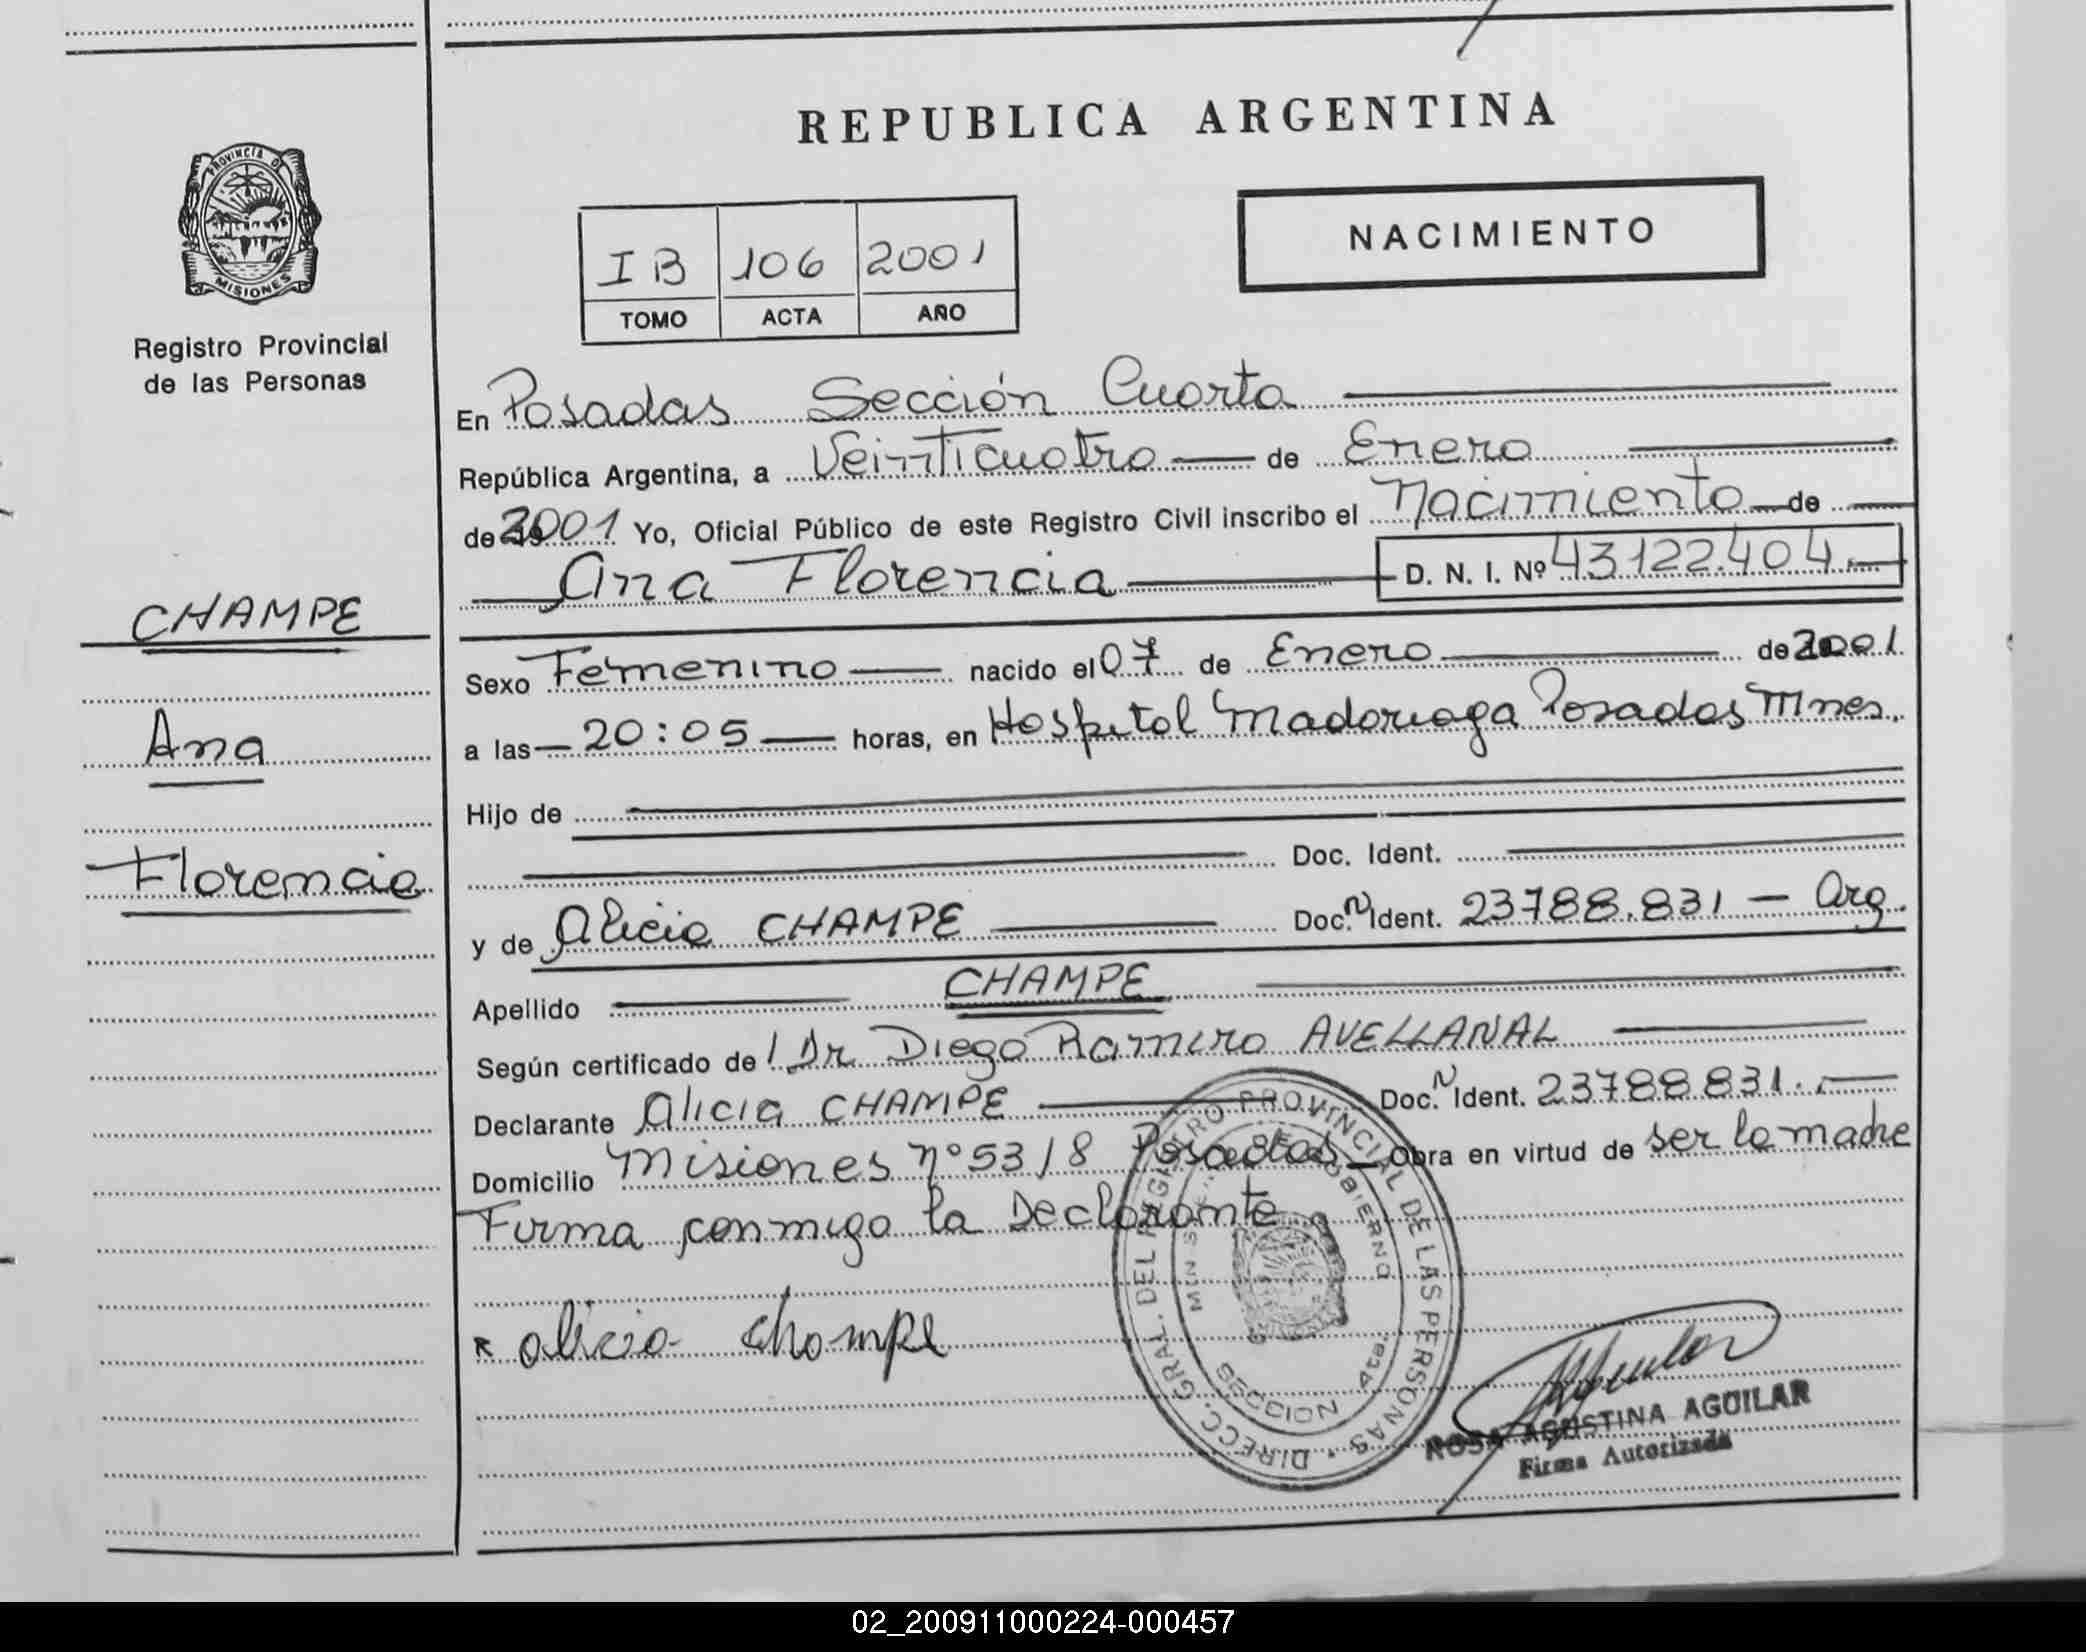 REPUBLICA ARGENTINA
PROVINCIA DE
MISIONES
Registro Provincial
de las Personas
I B 106 2001
TOMO ACTA AÑO
NACIMIENTO
En Posadas Sección Cuarta
República Argentina, a Veinticuatro de Enero
de 2001 Yo, Oficial Público de este Registro Civil inscribo el Nacimiento de
Ana Florencia D. N. I. Nº 43122.404.
CHAMPE
Ana
Florencia
Sexo Femenino nacido el 07 de Enero de 2001
a las 20:05 horas, en Hospital Madariaga Posadas Mnes.
Hijo de
Doc. Ident.
y de Alicia CHAMPE Doc. N Ident. 23788.831 - Arg.
Apellido CHAMPE
Según certificado de Dr Diego Ramiro AVELLANAL
Declarante Alicia CHAMPE Doc. N Ident. 23788831.
Domicilio Misiones nº 5318 Posadas Obra en virtud de ser la madre
Firma conmigo la Declarante.
Alicia Champe
DIRECC. GRAL. DEL REGISTRO PROVINCIAL DE LAS PERSONAS
DE GOBIERNO
SECCION 4ta.
ROSA AGUSTINA AGUILAR
Firma Autorizada
02_200911000224-000457